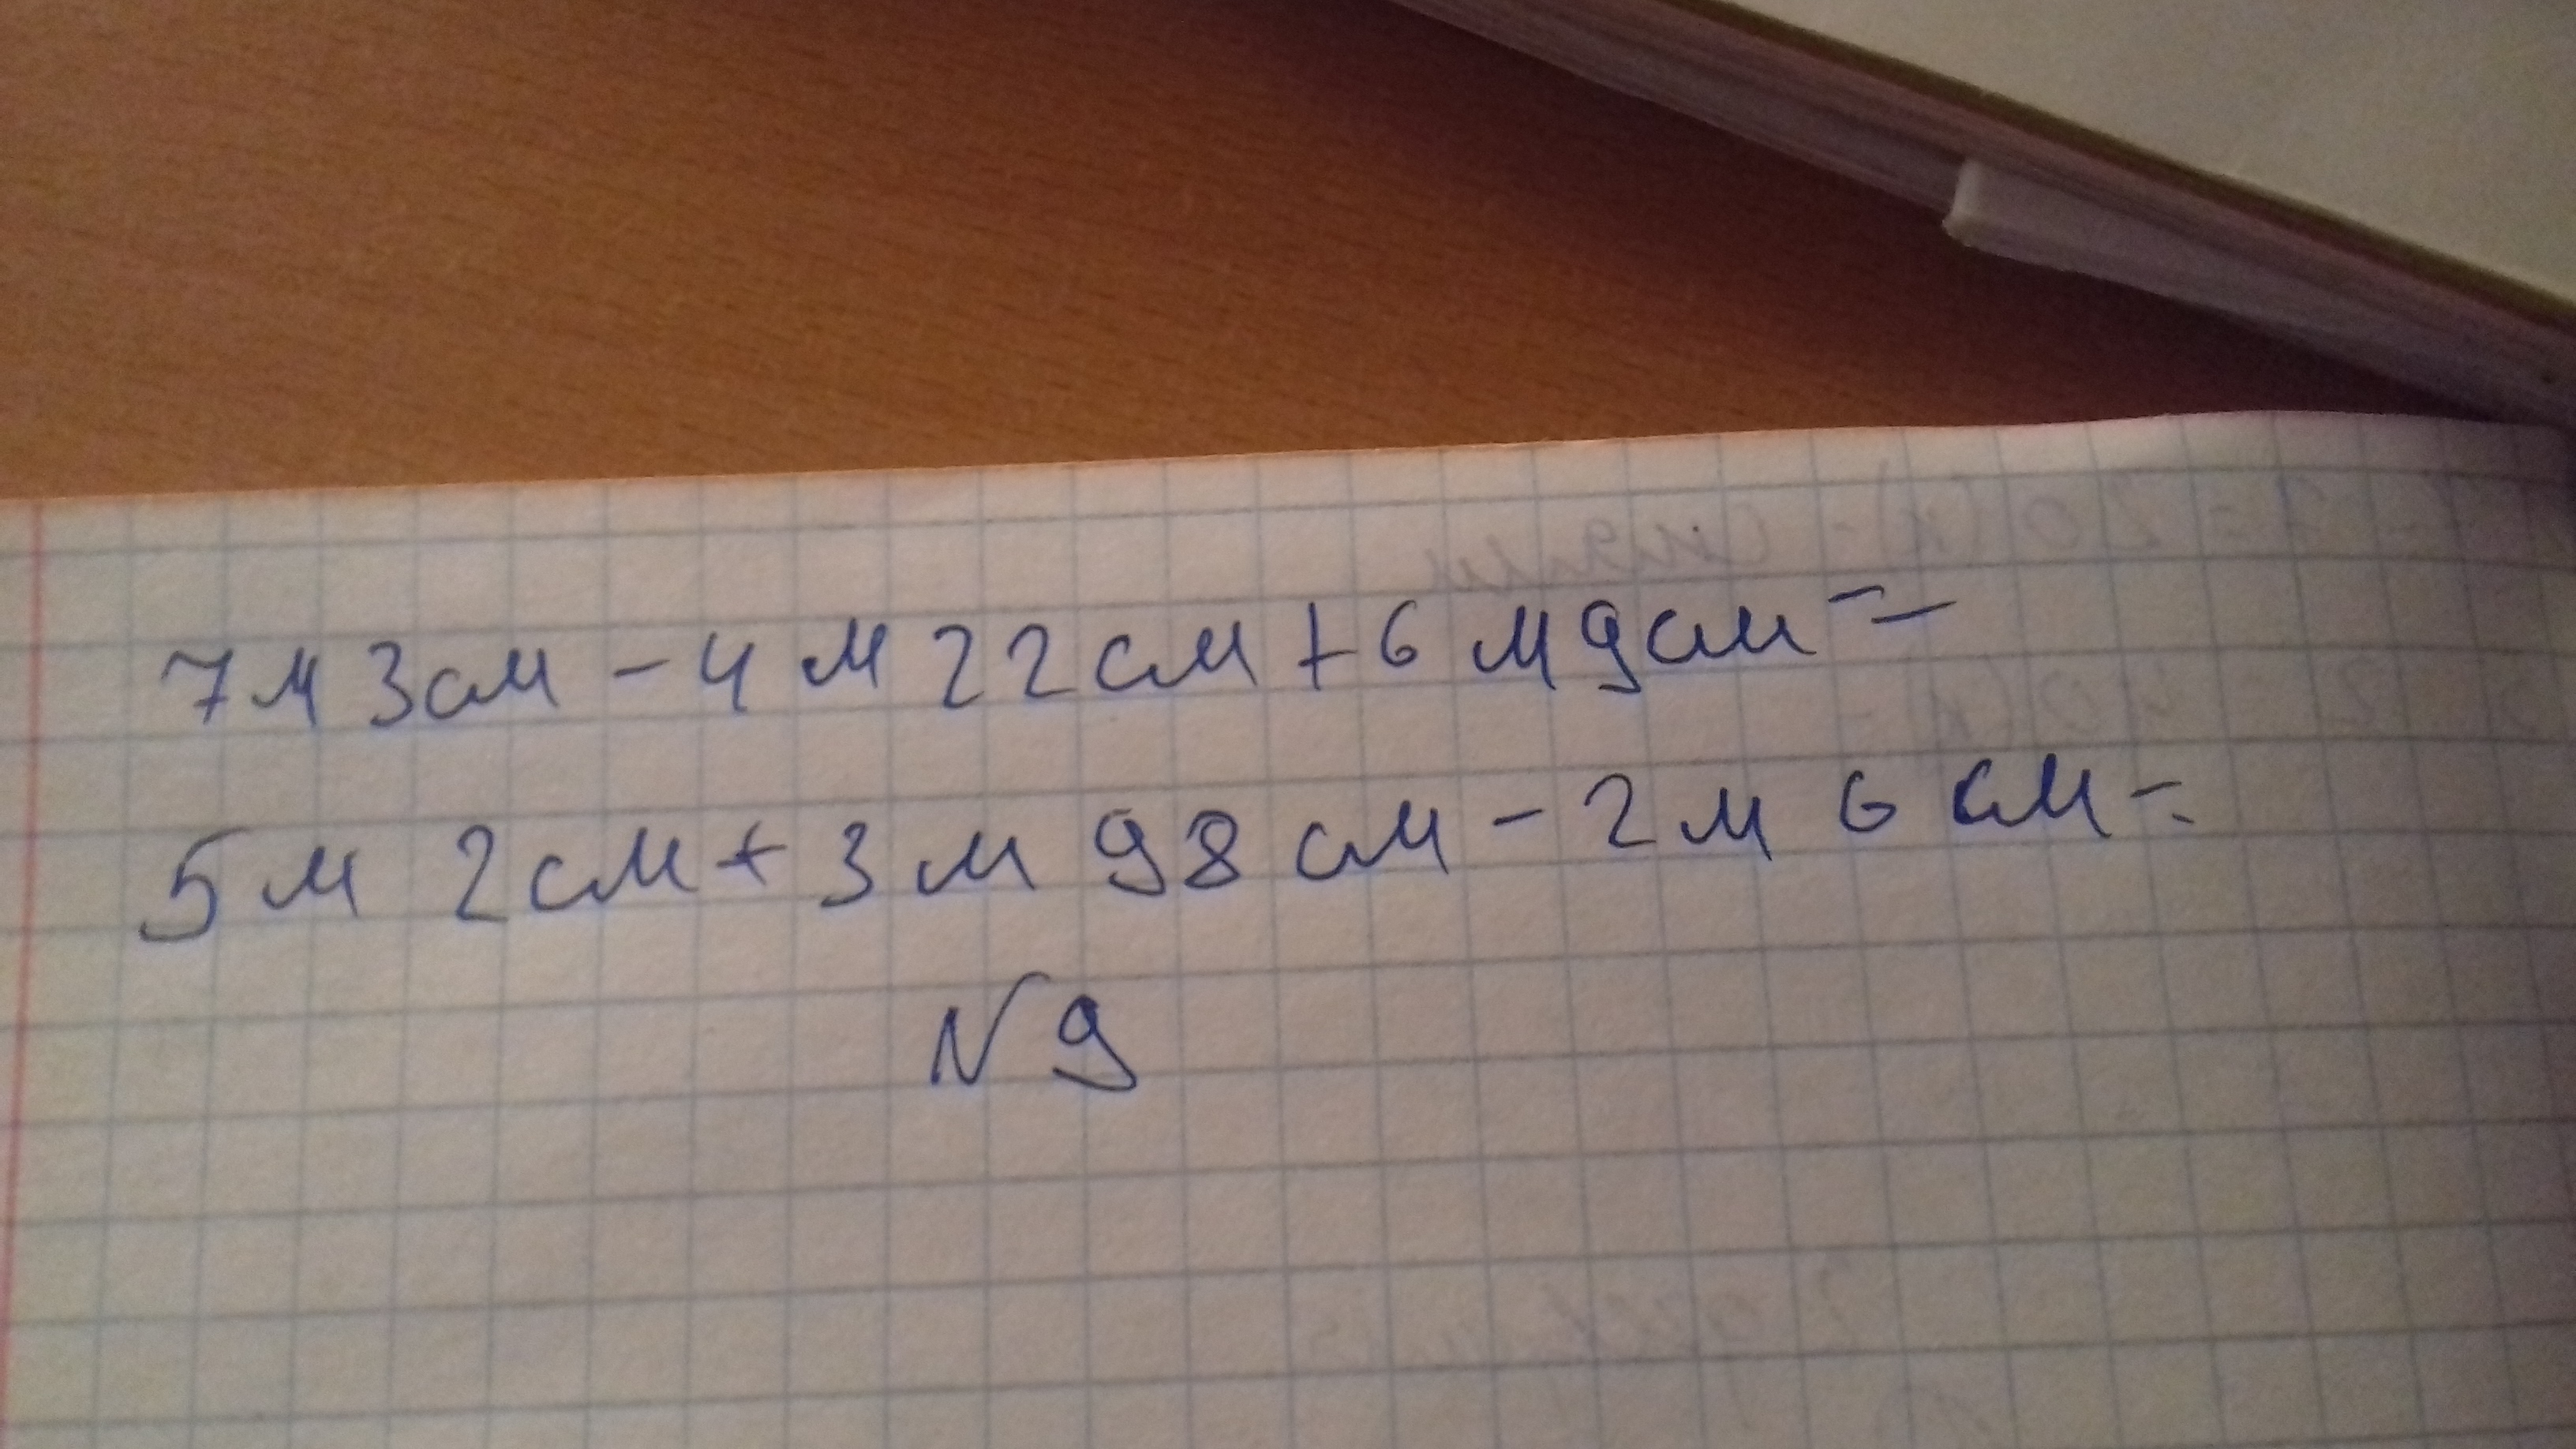 7м 3см - 4 м 22 см + 6 м 9см =
5 м 2см + 3 м 98 см - 2 м 6 см =
N 9